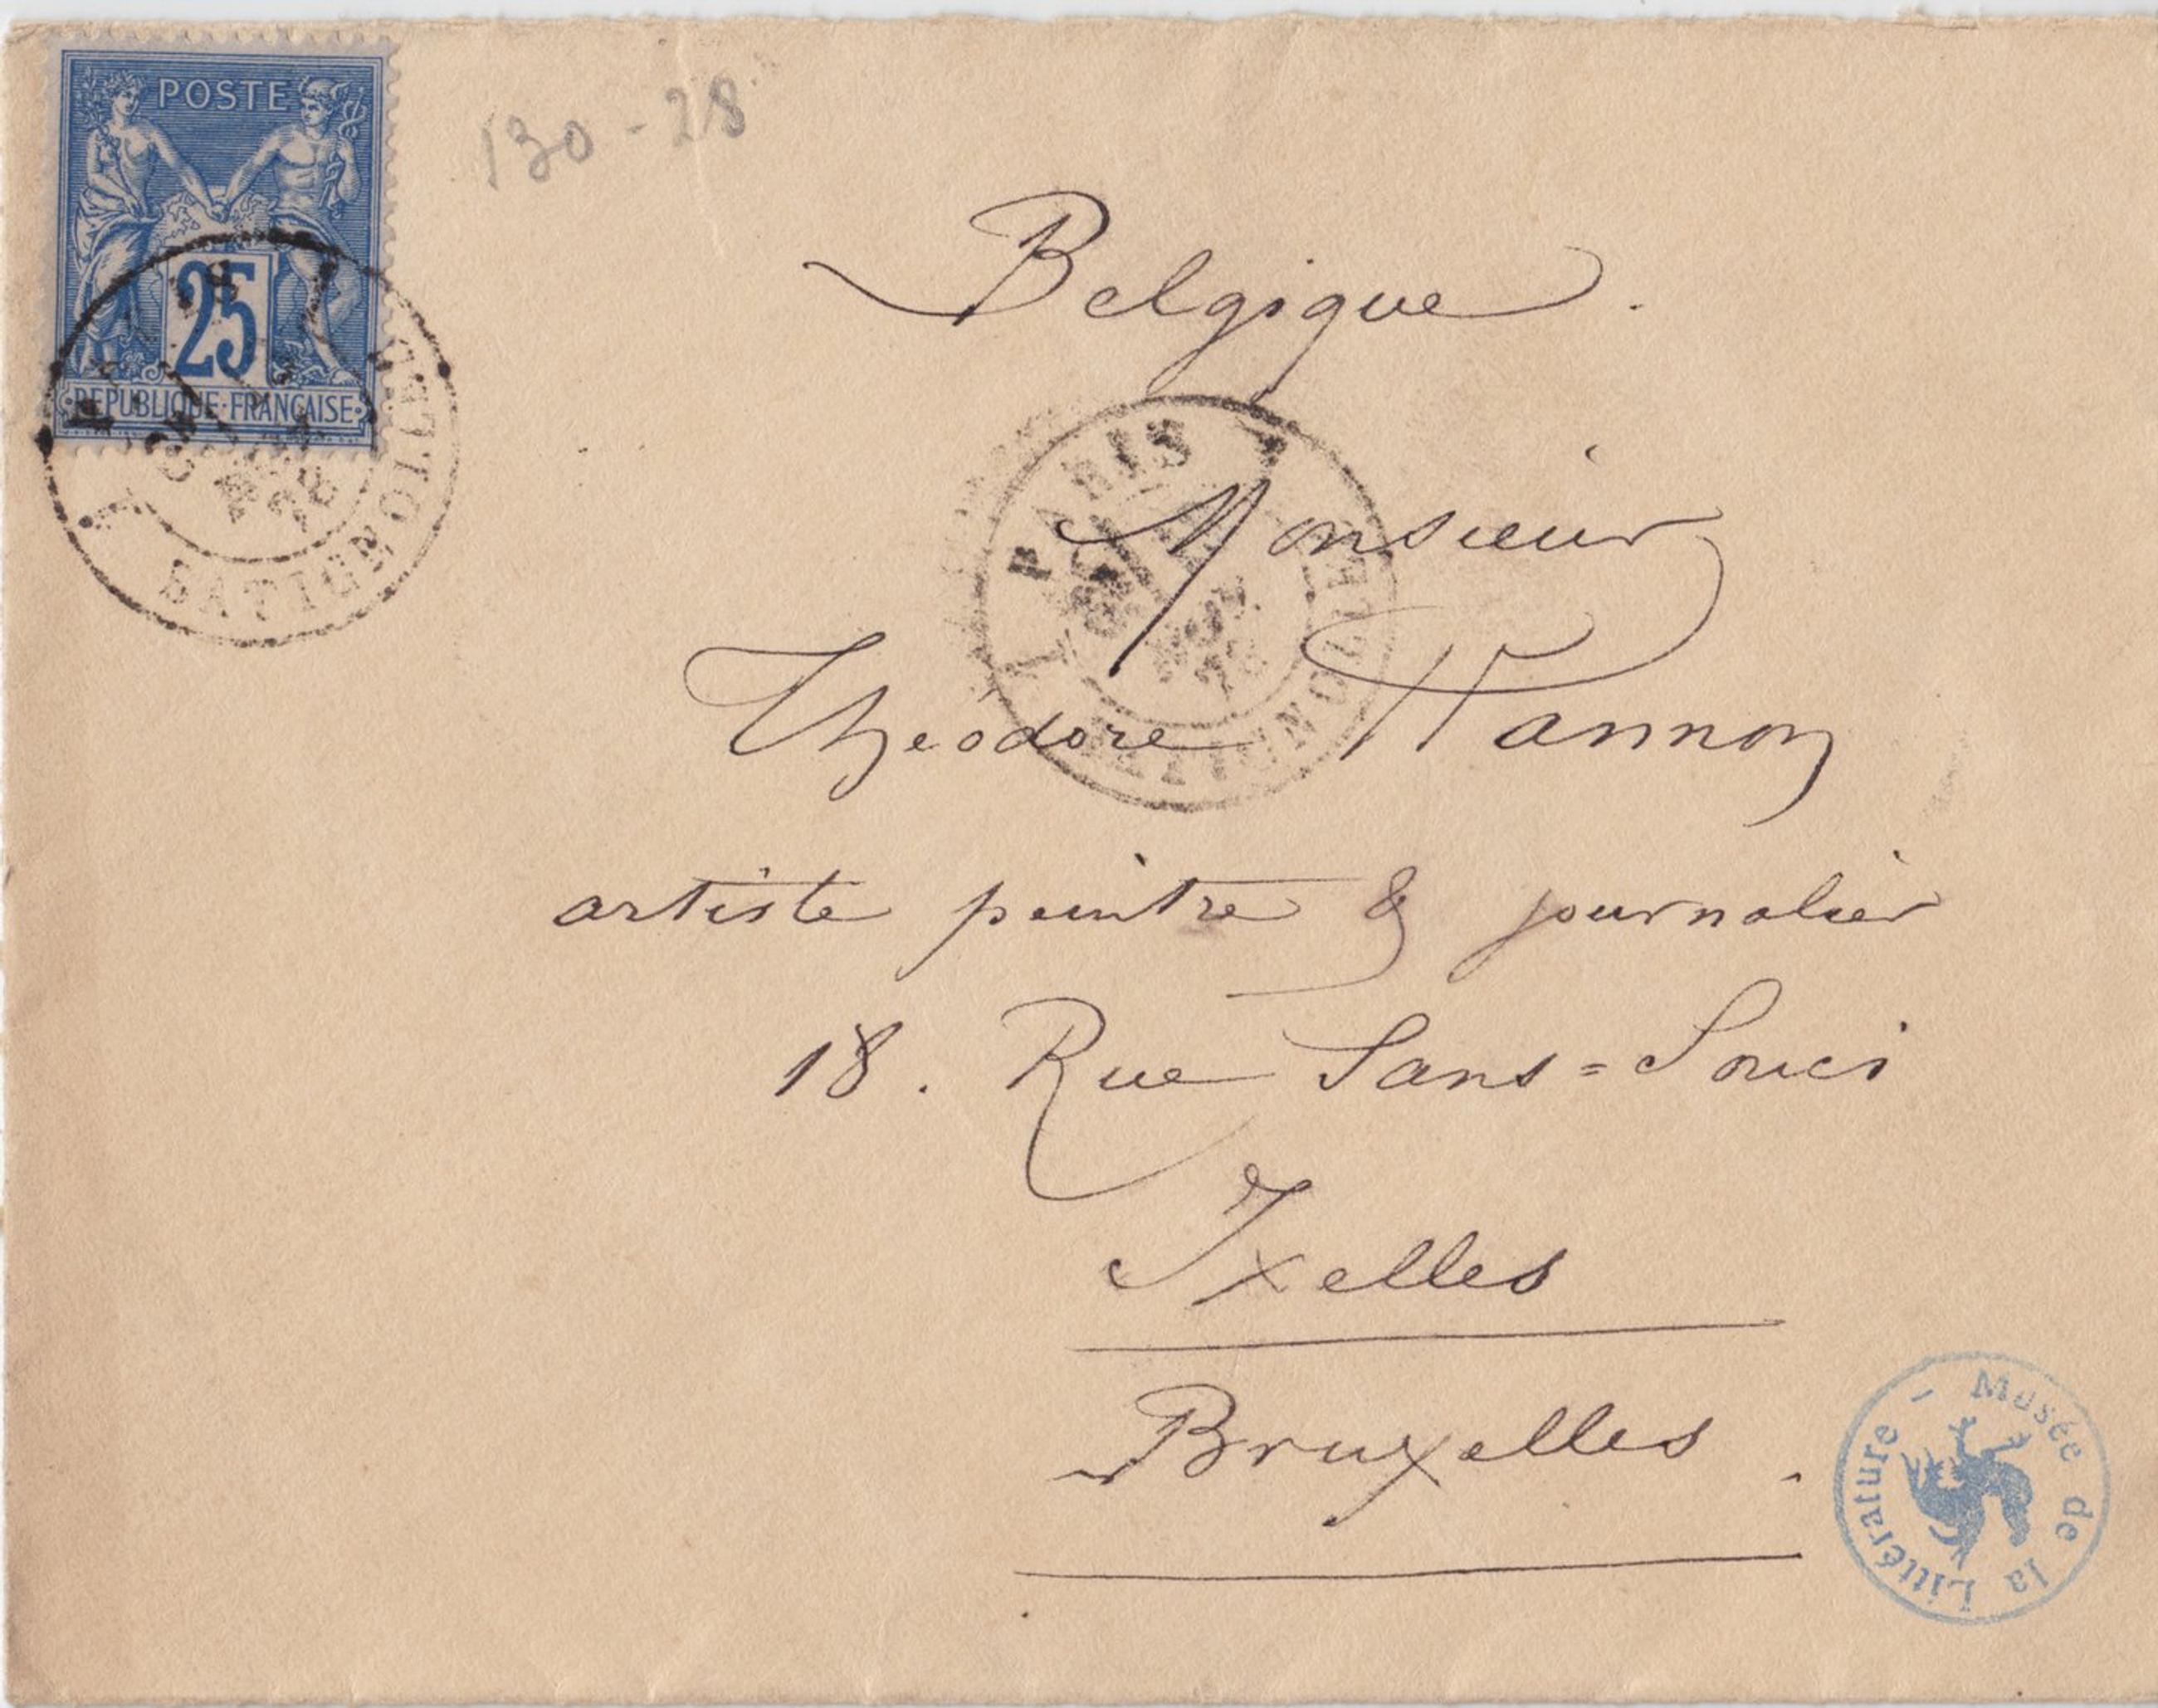 POSTE
25
REPUBLIQUE FRANÇAISE
130-28
Belgique.
PARIS
BATIGNOLLES
PARIS
BATIGNOLLES
Monsieur
Théodore Hannon
artiste peintre & journalier
18. Rue Sans=Souci
Ixelles
Bruxelles.
Musée de la Littérature -